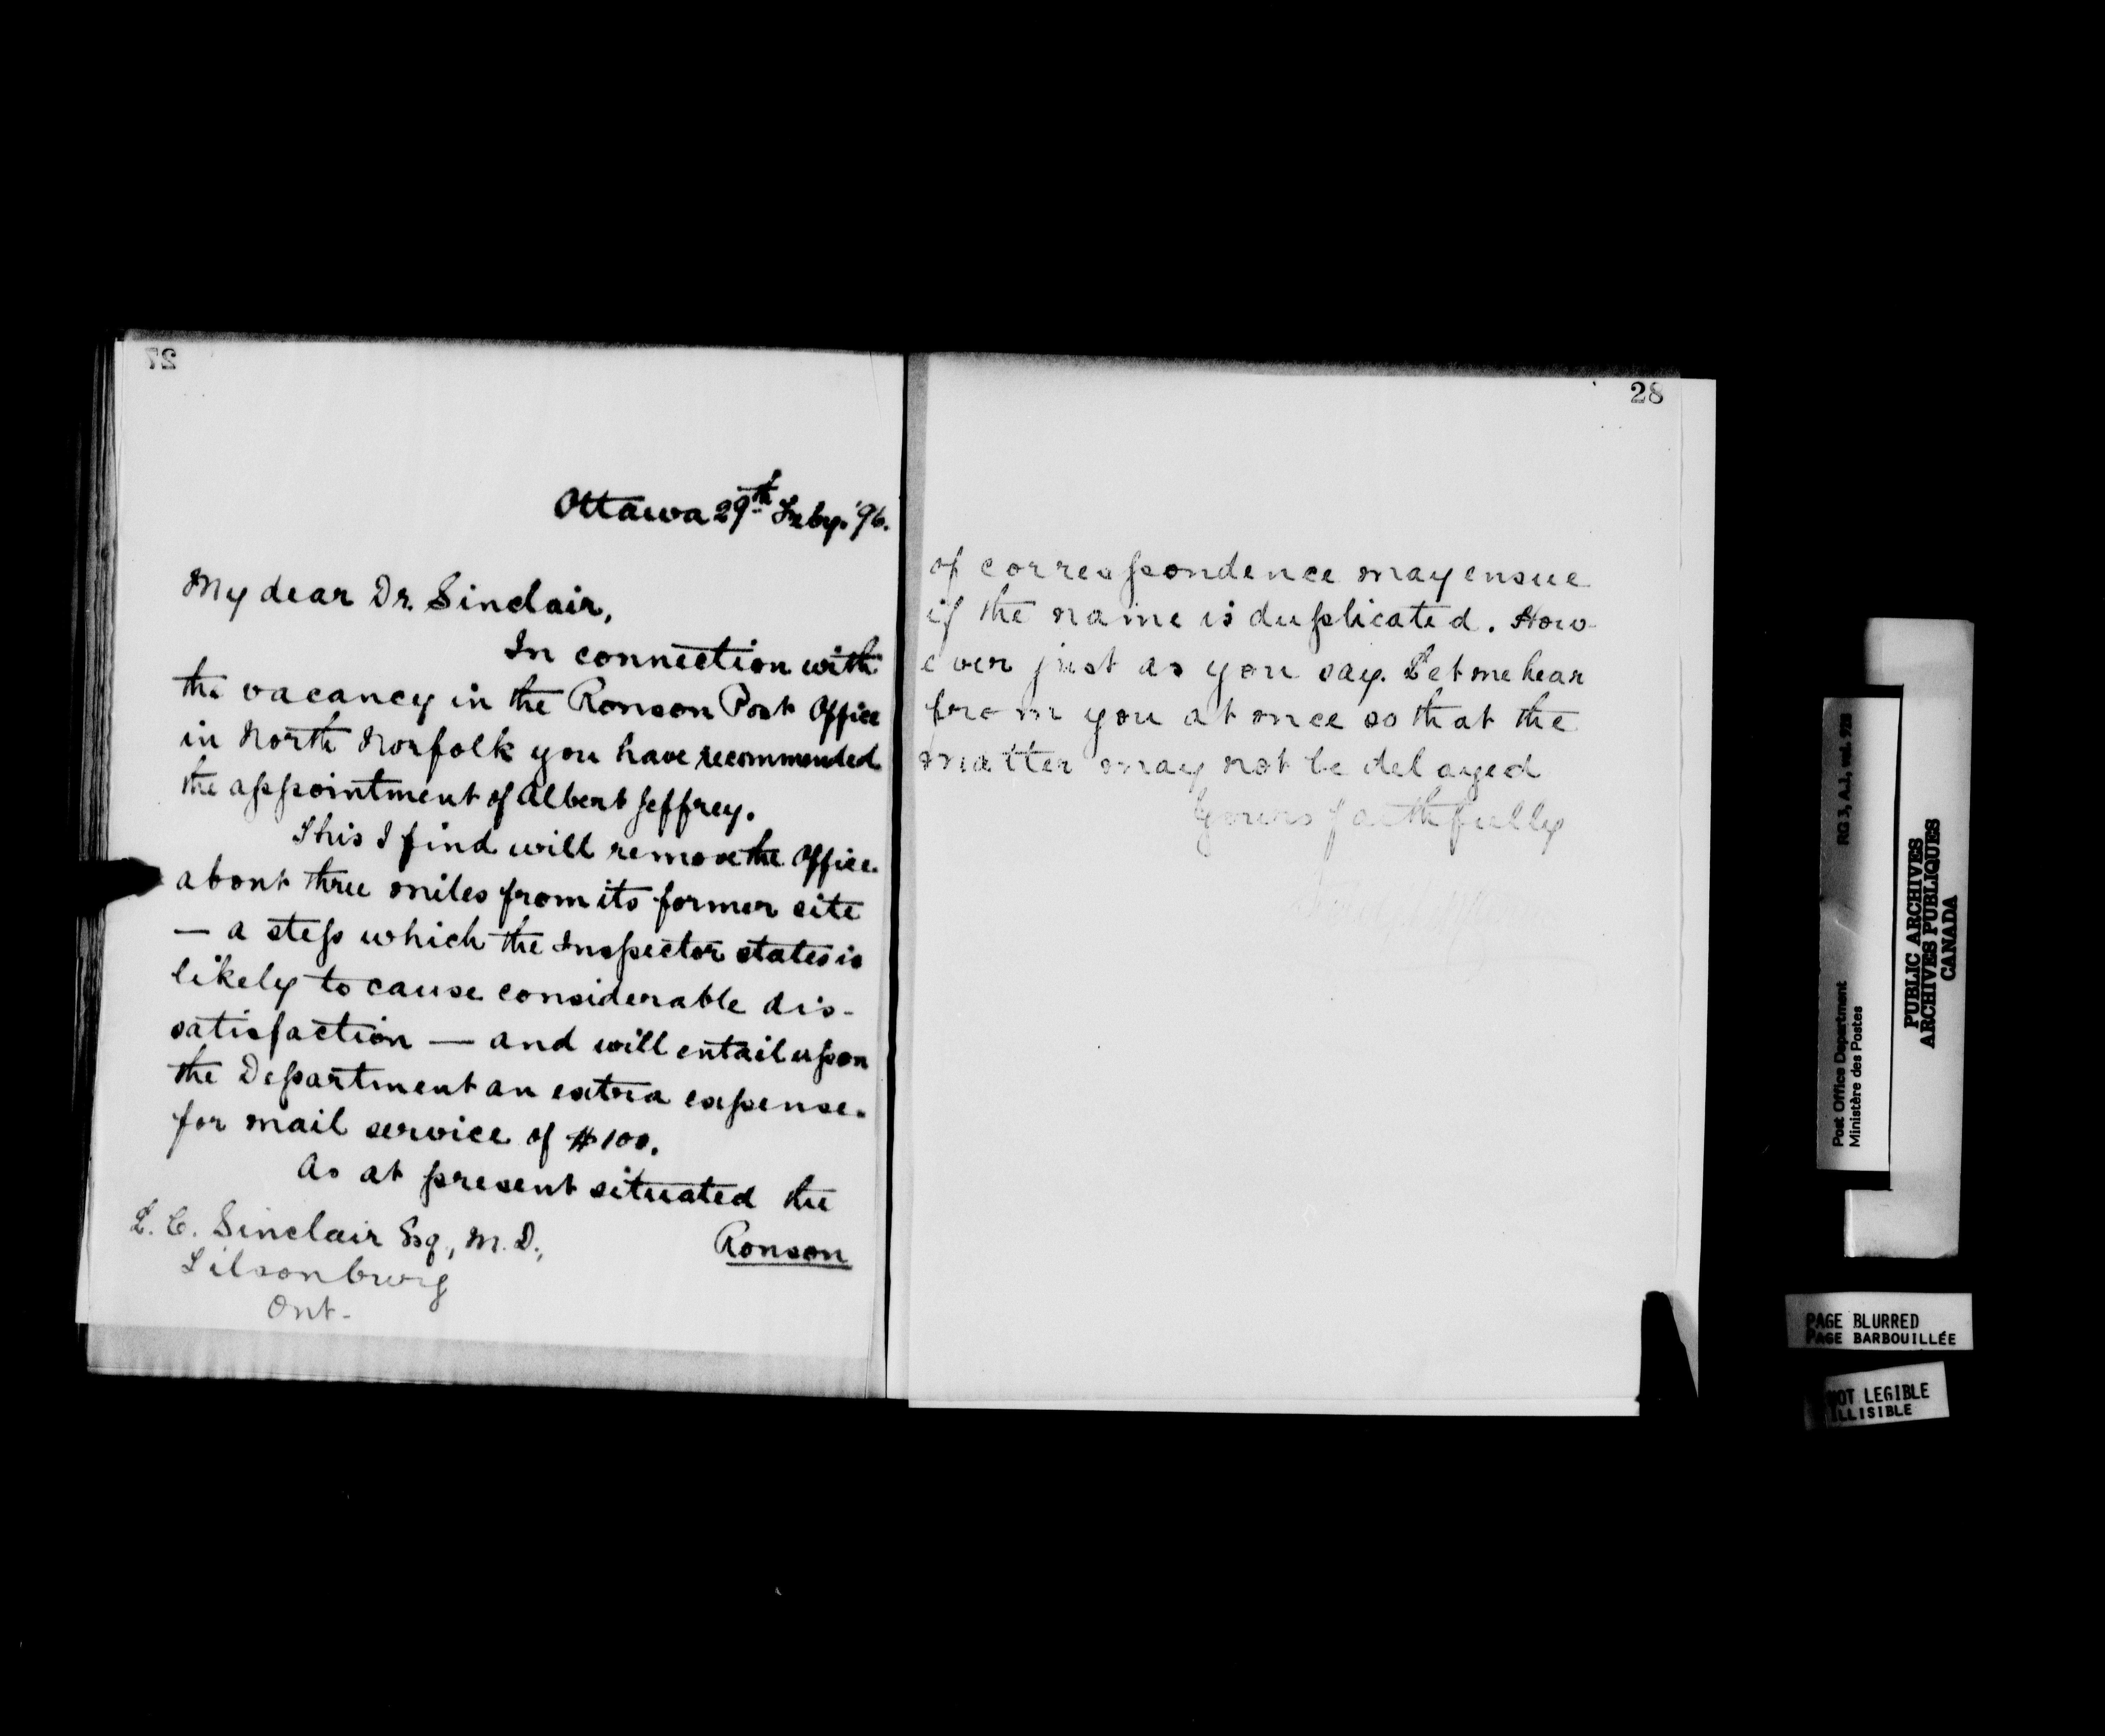 27
Ottawa 29th Feby. '96.
My dear Dr. Sinclair,
In connection with
the vacancy in the Ronson Post Office
in North Norfolk you have recommended
the appointment of Albert Jeffrey.
This I find will remove the Office
about three miles from its former site
— a step which the Inspector states is
likely to cause considerable dis-
satisfaction — and will entail upon
the Department an extra expense
for mail service of $100.
As at present situated the
Ronson
L. C. Sinclair Esq., M. D.,
Tilsonburg
Ont.
28
of correspondence may ensue
if the name is duplicated. How-
ever just as you say. Let me hear
from you at once so that the
matter may not be delayed
Yours faithfully
RG 3, A.1., vol. 928
Post Office Department
Ministère des Postes
PUBLIC ARCHIVES
ARCHIVES PUBLIQUES
CANADA
PAGE BLURRED
PAGE BARBOUILLÉE
NOT LEGIBLE
ILLISIBLE